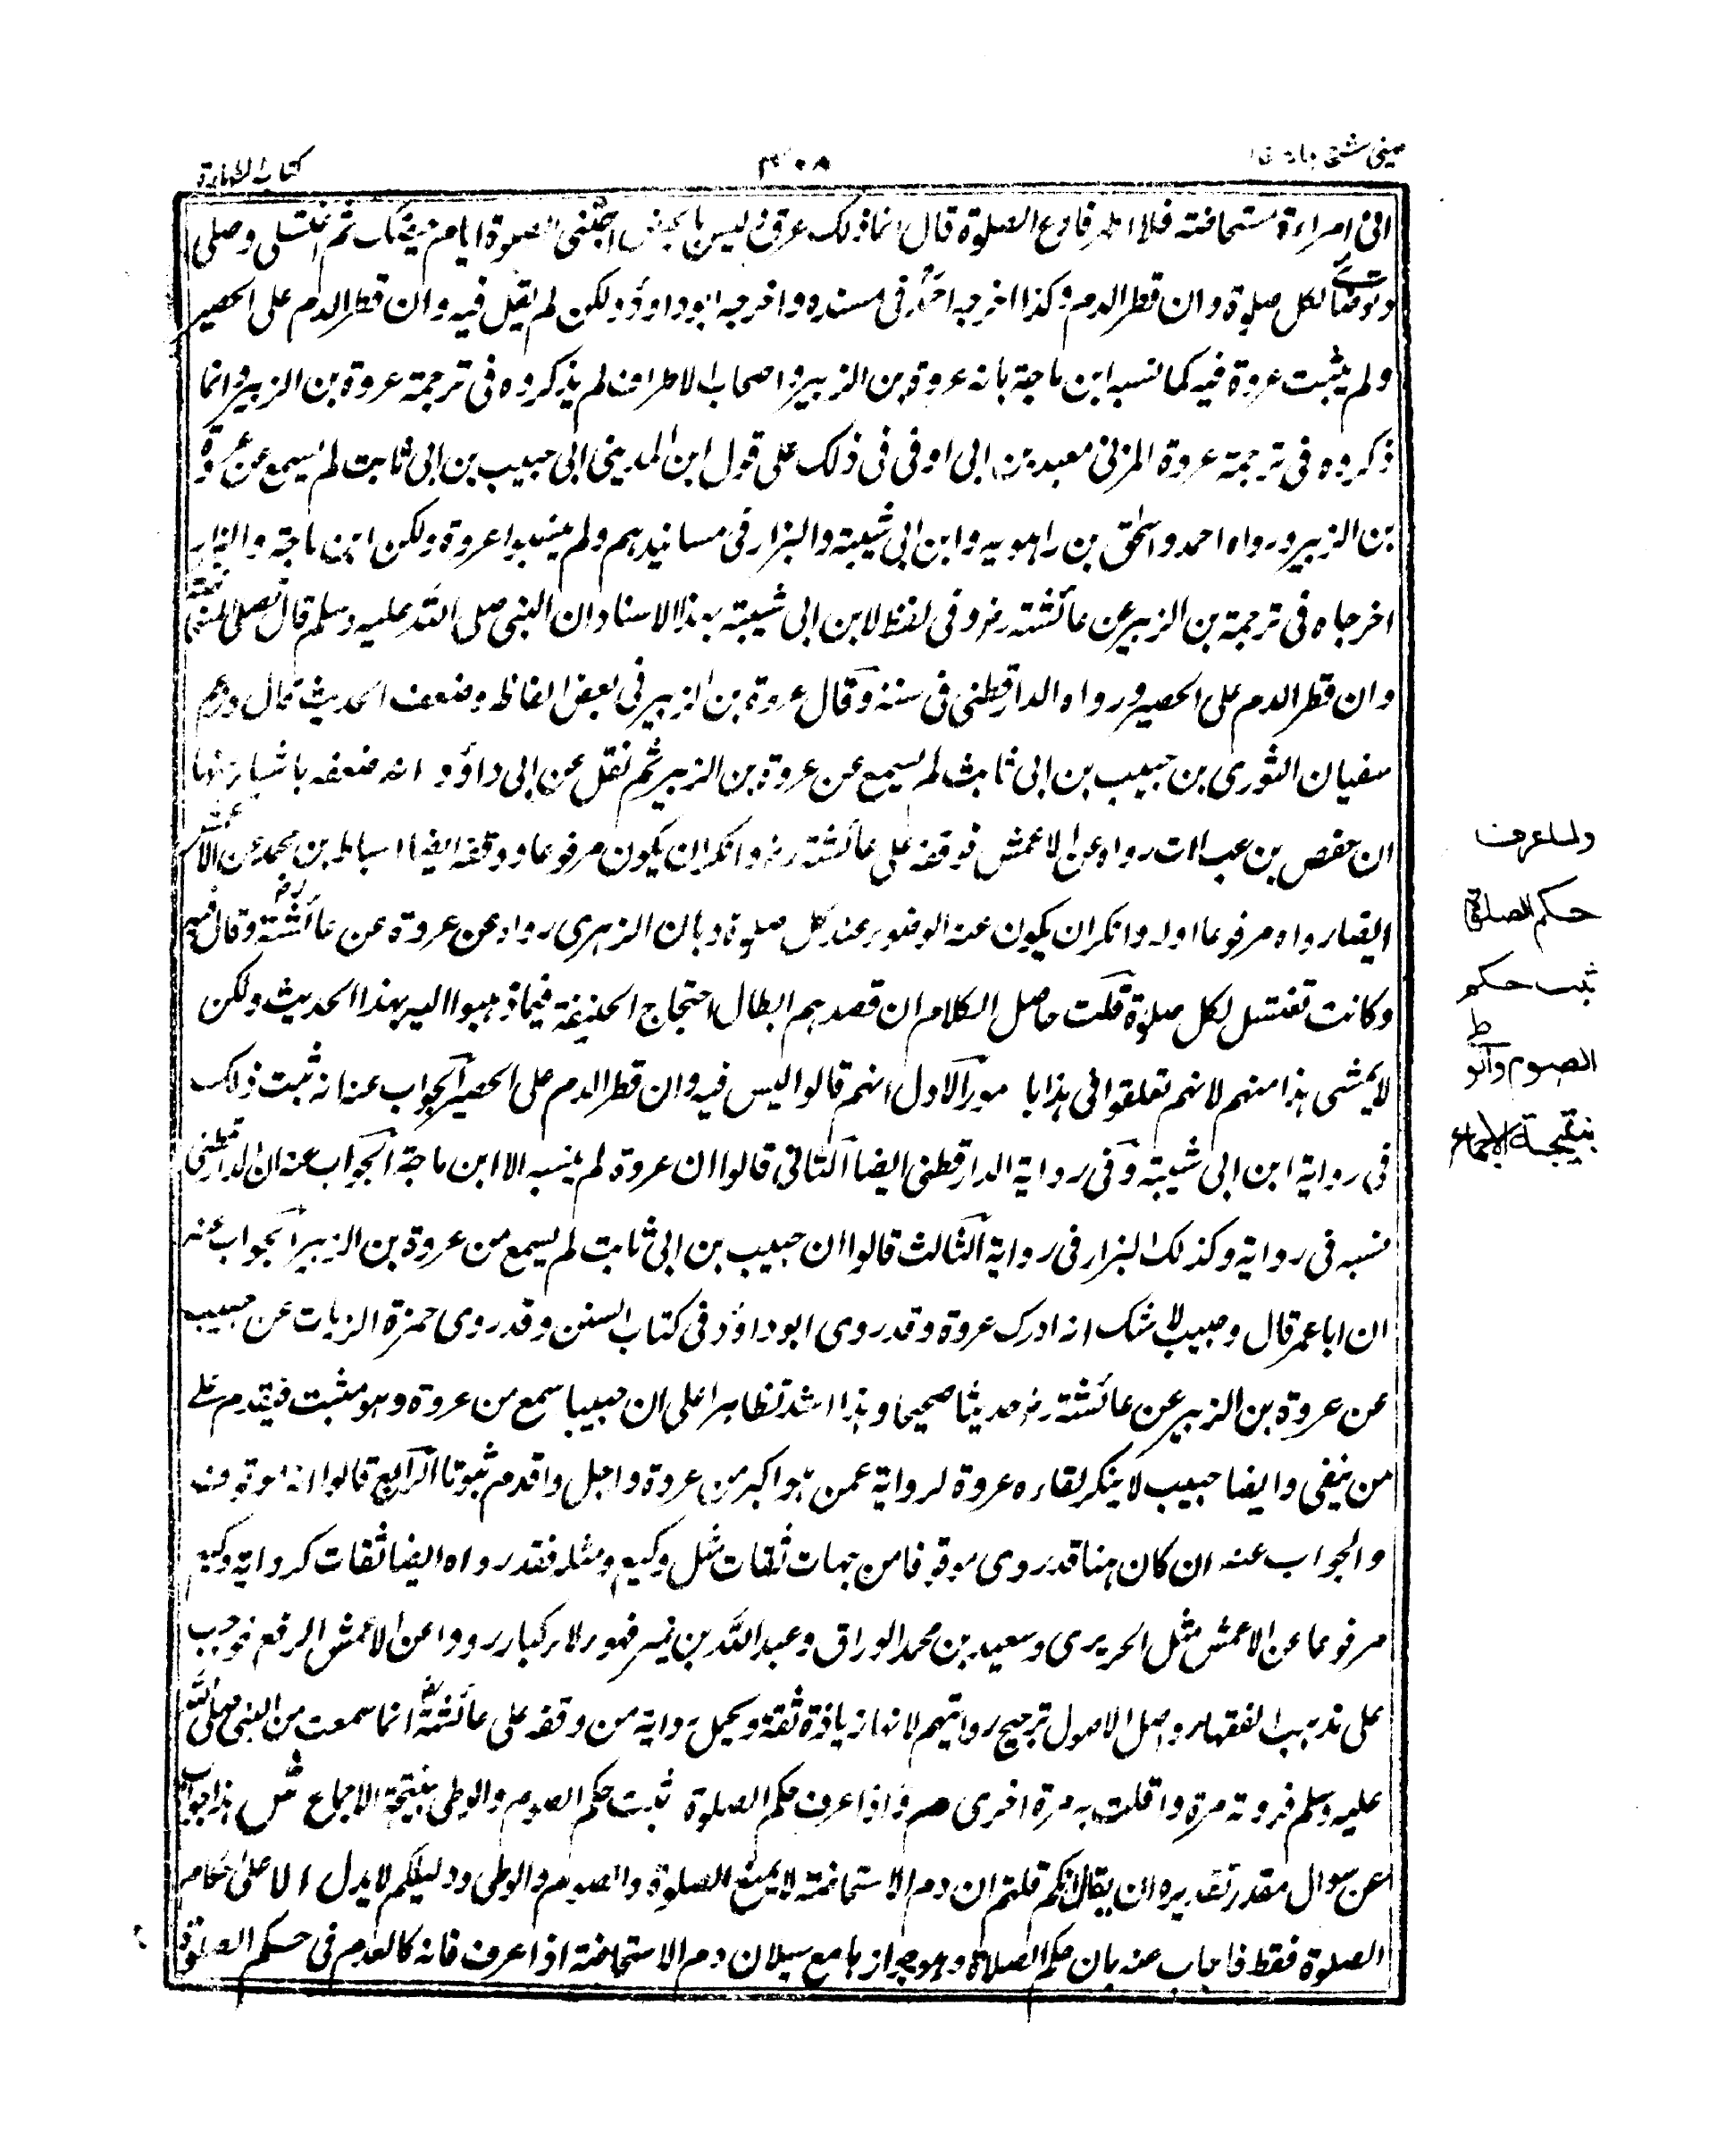 عینی شرح ہدایہ
۴۰۸
کتاب الطهارة
انی امراءة مستحاضته فلا اطهر فادع الصلوة قال انما ذلک عرق لیس بالحیض اجتنبی الصلوة ایام حیضک ثم اغتسلی وصلی
وتوضائی لکل صلوة وان قطر الدم وکذا اخرجه احمد فی مسنده واخرجه ابو داوؤد ولکن لم یقل فیه وان قطر الدم علی الحصیر
ولم یثبت عروة فیه کما نسبه ابن ماجة بانه عروة بن الزبیر واصحاب الاطراف لم یذکروه فی ترجمة عروة بن الزبیر وانما
ذکروه فی ترجمة عروة المزنی معبد بن ابی اوفی فی ذلک علی قول ابن المدینی ابی حبیب بن ابی ثابت لم یسمع عن عروة
بن الزبیر ورواه احمد واسحٰق بن راهویه وابن ابی شیبة والبزار فی مسانیدهم ولم ینسبوا عروة ولکن ابن ماجة والبزار
اخرجاه فی ترجمة بن الزبیر عن عائشته رضہ وفی لفظ لابن ابی شیبة بهذا الاسناد ان النبی صلی اللّٰه علیه وسلم قال تصلی المستحاضة
وان قطر الدم علی الحصیر ورواه الدارقطنی فی سننه وقال عروة بن الزبیر فی بعض الفاظه وضعف الحدیث قال وزعم
سفیان الثوری بن حبیب بن ابی ثابت لم یسمع عن عروة بن الزبیر ثم نقل عن ابی داؤد انه ضعفه باشیاء منها
ان حفص بن عیاث رواه عن الاعمش فوقفه علی عائشته رضہ وانکر ان یکون مرفوعا ووقفه ایضا اسباط بن محمد عن الاعمش
ایضا رواه مرفوعا اوله وانکر ان یکون عنه الوضوء عند کل صلوة وبان الزهری رواه عن عروة عن عائشة رضہ وقال فیه
وکانت تغتسل لکل صلوة قلت حاصل الکلام ان قصدهم ابطال احتجاج الحنیفة فیما ذهبوا الیه بهذا الحدیث ولکن
لا یمشی هذا منهم لانهم تعلقوا فی هذا بامور الاول انهم قالوا لیس فیه وان قطر الدم علی الحصیر الجواب عنه انه ثبت ذلک
فی روایة ابن ابی شیبة وفی روایة الدارقطنی ایضا الثانی قالوا ان عروة لم ینسبه الا ابن ماجة الجواب عنه ان الدارقطنی
نسبه فی روایة وکذلک البزار فی روایة الثالث قالوا ان حبیب بن ابی ثابت لم یسمع من عروة بن الزبیر الجواب عنه
ان ابا عمر قال وحبیب لا شک انه ادرک عروة وقد روی ابو داؤد فی کتاب السنن وقد روی حمزة الزیات عن حبیب
عن عروة بن الزبیر عن عائشته رضہ حدیثا صحیحا وهذا اشد تظاهرا علی ان حبیبا سمع من عروة وهو مثبت فیقدم علی
من ینفی وایضا حبیب لا ینکر لقاءه عروة لروایة عمن هو اکبر من عروة واجل واقدم ثبوتا الرابع قالوا انه موقوف
والجواب عنه ان کان هنا قد روی موقوفا من جهات ثقات مثل وکیع ومثله فقد رواه ایضا ثقات کروایة وکیع
مرفوعا عن الاعمش مثل الحریری وسعید بن محمد الوراق وعبد اللّٰه بن نمیر فهولاء کبار رووا عن الاعمش الرفع فوجب
علی مذهب الفقهاء واهل الاصول ترجیح روایتهم لانها زیادة ثقة ویحمل روایة من وقفه علی عائشة رضہ انما سمعت من النبی صلی اللّٰه
علیه وسلم فروته مرة وافتت به مرة اخری صر واذا عرف حکم الصلوة ثبت حکم الصوم والوطی بنتیجة الاجماع ش هذا جواب
عن سوال مقدر تقدیره ان یقال انکم قلتم ان دم الاستحاضته لا یمنع الصلوة والصوم والوطی ودلیلکم لا یدل الا علی حکم
الصلوة فقط فاجاب عنه بان حکم الصلاة وهو جوازها مع سیلان دم الاستحاضته اذا عرف فانه کالعدم فی حکم الصلوة
ولما عرف
حکم الصلوة
ثبت حکم
الصوم والوطی
بنتیجة الاجماع